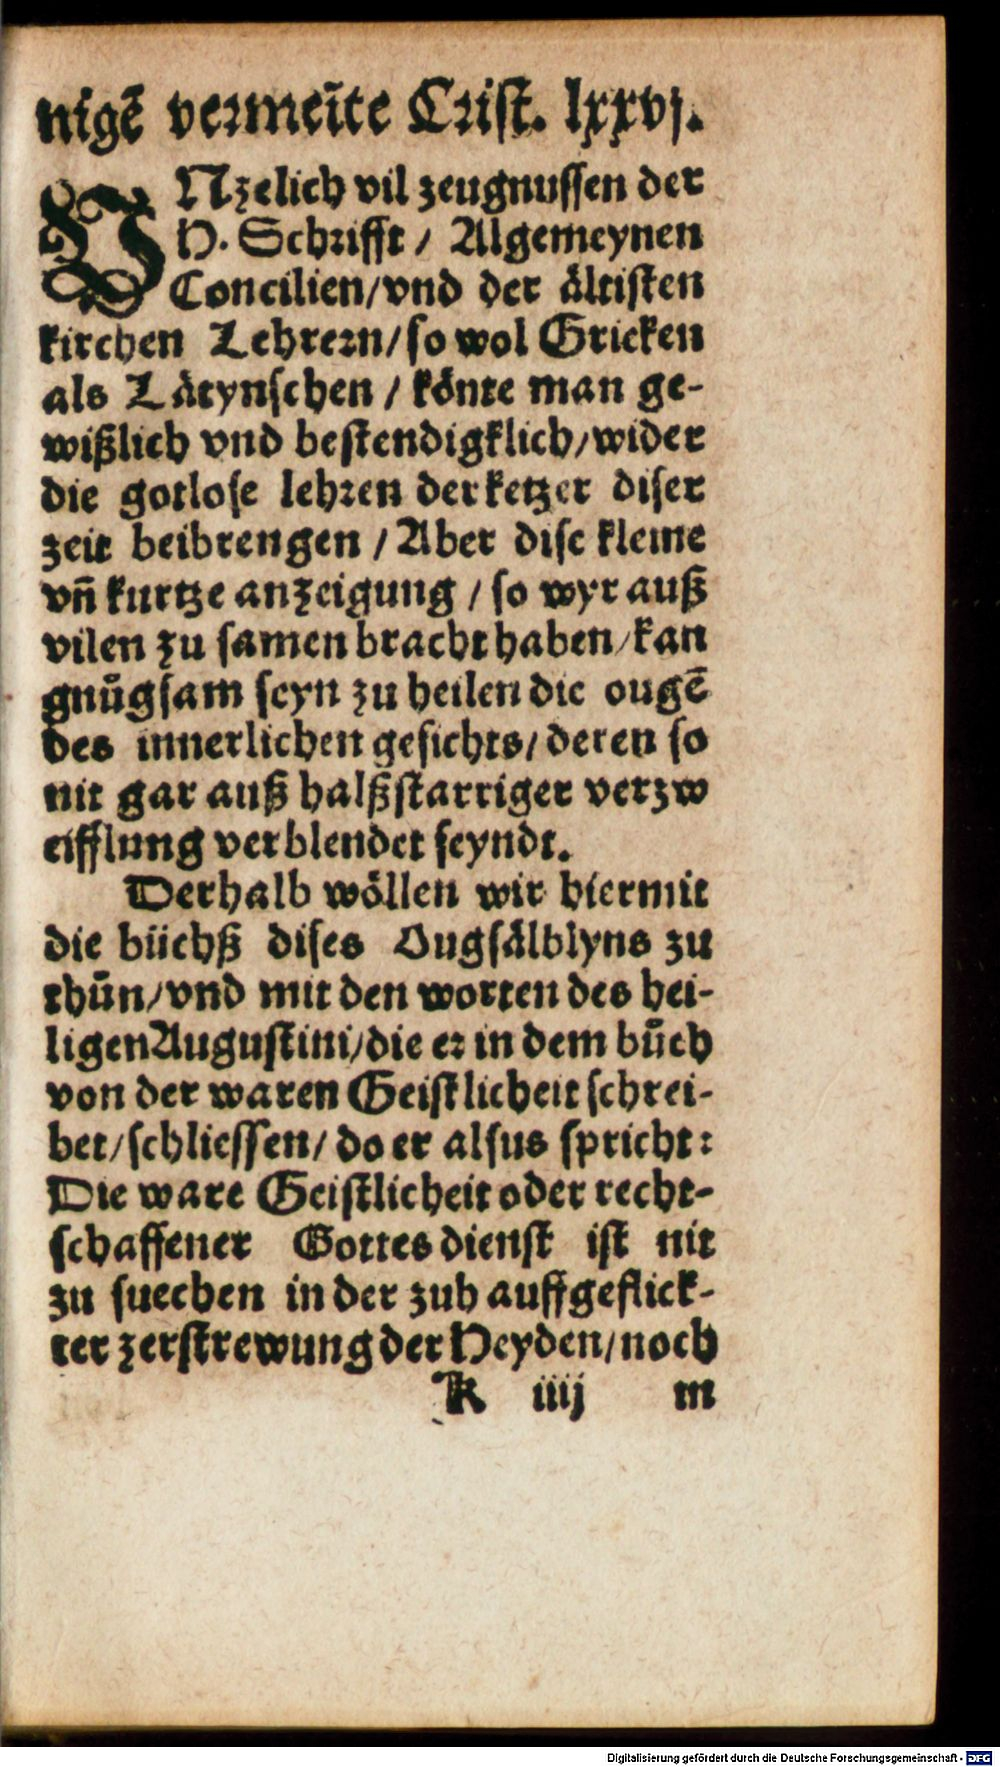 nigẽ vermeĩte Crist. lxxvj.
VNzelich vil zeugnussen der
H. Schrifft / Algemeynen
Concilien/vnd der ältisten
kirchen Lehrern/so wol Gricken
als Lätynschen / könte man ge-
wißlich vnd bestendigklich/wider
die gotlose lehren der ketzer diser
zeit beibrengen / Aber dise kleine
vñ kurtze anzeigung / so wyr auß
vilen zu samen bracht haben/kan
gnůgsam seyn zu heilen die ougẽ
des innerlichen gesichts/deren so
nit gar auß halßstarriger verzw
eifflung verblendet seyndt.
Derhalb wöllen wir hiermit
die büchß dises Ougsälblyns zu
thůn/vnd mit den worten des hei-
ligen Augustini/die er in dem bůch
von der waren Geistlicheit schrei-
bet/schliessen/do er alsus spricht:
Die ware Geistlicheit oder recht-
schaffener Gottes dienst ist nit
zu suechen in der zuh auffgeflick-
ter zerstrewung der Heyden/noch
K iiij in
Digitalisierung gefördert durch die Deutsche Forschungsgemeinschaft - DFG